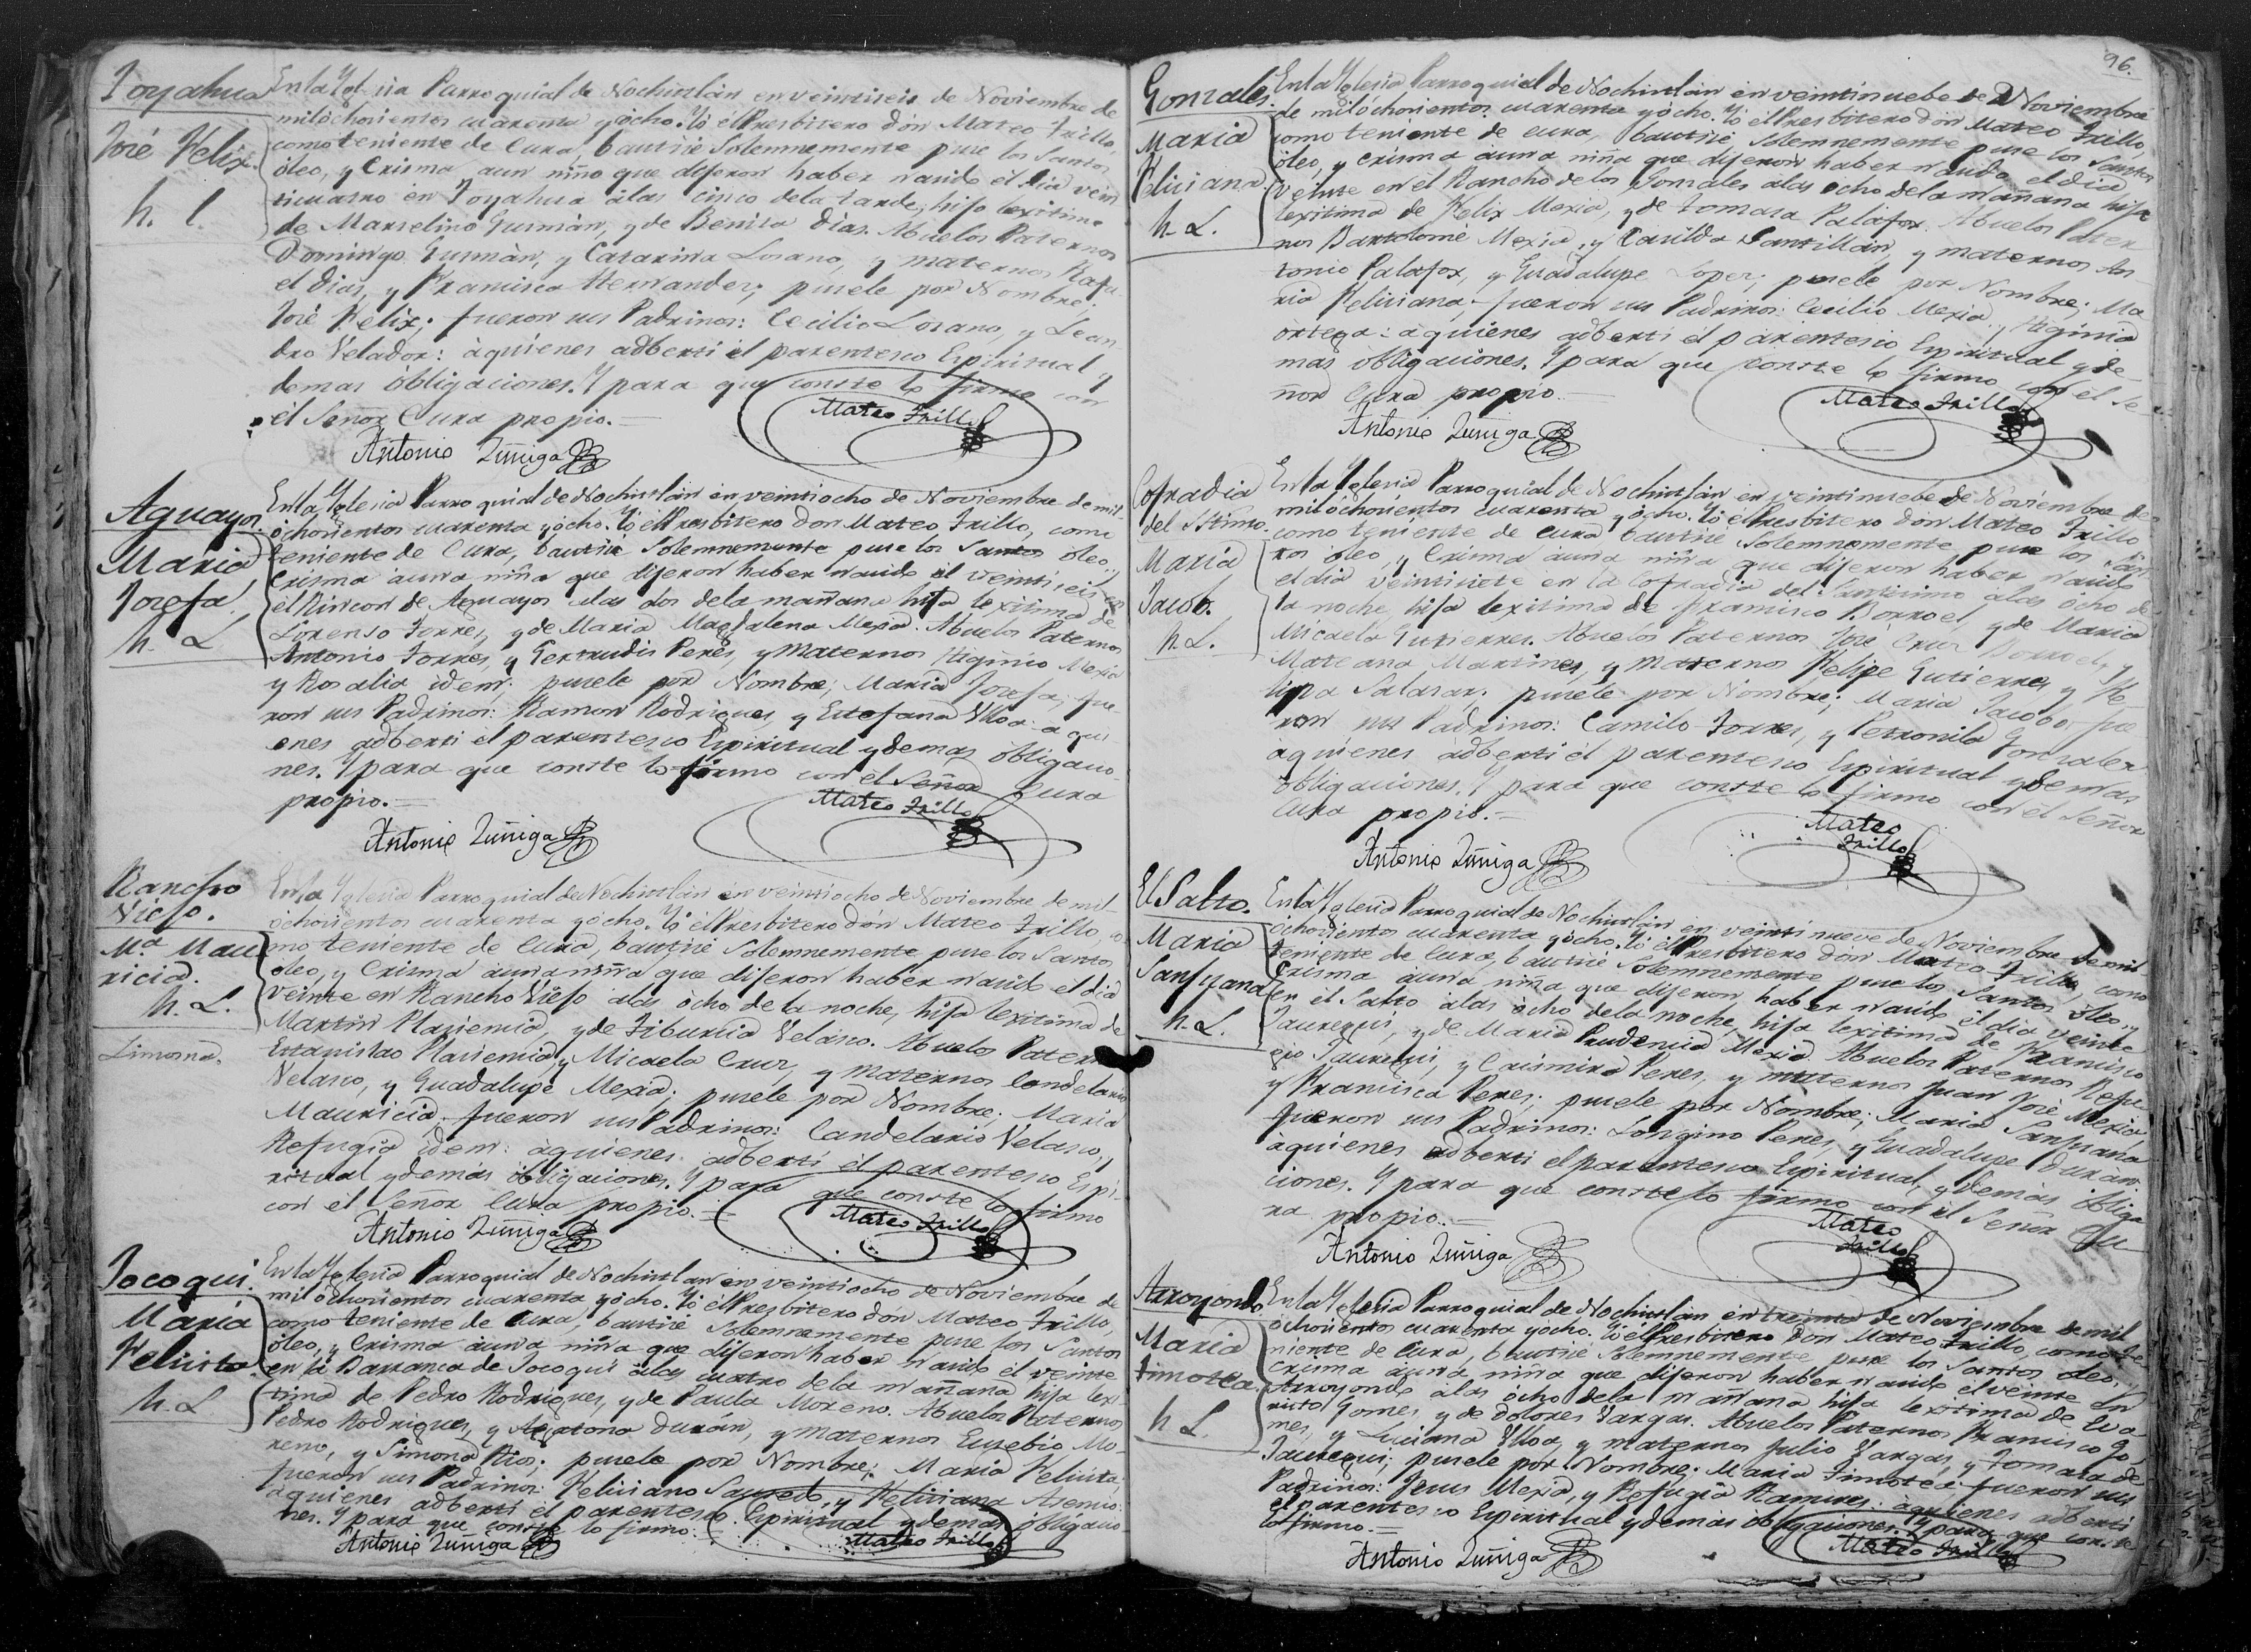 Toyahua
José Felix.
h. l.
En la Yglesia Parroquial de Nochistlán en veintiseis de Noviembre de
mil ochosientos cuarenta y ócho. Yó él Presbitero dón Mateo Trillo,
como teniente de Cura, bautisé Solemnemente puse los Santos
óleo, y Crisma aun niño que dijeron haber nasido él dia vein
ticuatro en Toyahua álas cinco dela tarde; hijo lexitimo
de Marselino Gusmán, y de Benita Días. Abuelos Paternos
Domingo Gusmán, y Catarina Losano, y maternos Rafa
el Días, y Francisca Hernandez; pusele por Nombre;
José Felix; fueron sus Padrinos: Cecilio Losano, y Lean
dro Velador: áquienes adbertí él parentesco Espiritual y
demas óbligaciones. Y para que conste lo firmo con
él Señor Cura propio.=
Mateo Trillo
Antonio Zuñiga
Aguayos
Maria
Josefa.
h. L
En la Yglesia Parroquial de Nochistlán en veintiocho de Noviembre de mil
óchosientos cuarenta yócho. Yó él Presbitero Don Mateo Trillo, como
teniente de Cura, bautisé Solemnemente puse los Santos óleo, y
Crisma áuna niña que dijeron haber nasido él veintiseis en
el Rincon de Aguayos alas dos dela mañana hija lexitima de
Lorenso Torres, y de Maria Magdalena Mexia. Abuelos Paternos
Antonio Torres, y Gertrudis Peres, y Maternos Higinio Mexia
y Rosalia idem; pusele por Nombre; Maria Josefa; fue-
ron sus Padrinos: Ramon Rodrigues, y Estefana Ulloa: a qui
enes adberti él parentesco Espiritual y demas óbligacio-
nes. Y para que conste lo firmo con él Señor Cura
propio.=
Mateo Trillo
Antonio Zuñiga
Rancho
Viejo.
Mª. Mau
ricia.
h. L.
Limosna.
En la Yglesia Parroquial de Nochistlán en veintiocho de Noviembre de mil-
óchosientos cuarenta yócho. Yó él Presbitero dón Mateo Trillo, co
mo teniente de Cura, bautisé Solemnemente puse los Santos
óleo, y Crisma áuna niña que dijeron haber nasido el dia
veinte en Rancho Viejo álas ócho de la noche, hija lexitima de
Martin Plasiensia, y de Tiburcia Velasco. Abuelos Paternos
Estanislao Plasiensia, y Micaela Crus, y Maternos Candelario
Velasco, y Guadalupe Mexia; pusele por Nombre; Maria
Mauricia; fueron sus Padrinos: Candelario Velasco, y
Refugia idem: áquienes adbertí él parentesco Espi-
ritual y demás óbligaciones. Y para que conste lo firmo
con él Señor Cura propio.=
Mateo Trillo
Antonio Zuñiga
Tocoqui.
Maria
Felicita
h. L
En la Yglesia Parroquial de Nochistlan en veintiocho de Noviembre de
mil óchosientos cuarenta yócho. Yó él Presbitero Dón Mateo Trillo,
como teniente de Cura, bautisé Solemnemente puse los Santos
óleo, y Crisma áuna niña que dijeron haber nasido él veinte
en la Barranca de Tocoqui álas cuatro dela mañana hija lexi-
tima de Pedro Rodrigues, y de Paula Moreno. Abuelos Paternos
Pedro Rodrigues, y Durán, y Maternos Eusebio Mo-
reno, y Simona Rios; pusele por Nombre; Maria Felicita;
fueron sus Padrinos: Feliciano Saucedo, y Feliciana Asencio:
áquienes adberti él parentesco Espiritual y demas óbligacio-
nes. Y para que conste lo firmo.
Mateo Trillo
Antonio Zuñiga
96.
Gonzales.
Maria
Feliciana.
h. L.
En la Yglesia Parroquial de Nochistlán en veintinuebe de Noviembre
de mil óchosientos cuarenta yócho. Yó él Presbitero dón Mateo Trillo,
como teniente de cura, bautisé Solemnemente puse los Santos
óleo, y Crisma áuna niña que dijeron haber nasido él dia
veinte en él Rancho de los Gonsales álas ocho de la mañana hija
lexitima de Felix Mexia, y de Tomasa Palafox. Abuelos Pater
nos Bartolomé Mexia, y Casilda Santillán, y maternos An
tonio Palafox, y Guadalupe Lopez; pusele por Nombre; Ma
ria Feliciana; fueron sus Padrinos: Cecilio Mexia, y Higinia
órtega: áquienes adberti él parentesco Espiritual y de-
más óbligaciones. Y para que conste lo firmo con él Se-
ñor Cura propio.=
Mateo Trillo
Antonio Zuñiga
Cofradia
del SStimo.
Maria
Jacob.
h. L.
En la Yglesia Parroquial de Nochistlán en veintinuebe de Noviembre de
mil óchosientos cuarenta yócho. Yó él Presbitero dón Mateo Trillo
como teniente de cura bautisé Solemnemente puse los San
tos óleo, y Crisma áuna niña que dijeron haber nasido
el dia veintisiete en la Cofradia del Santisimo álas ócho de
la noche, hija lexitima de Francisco Borroel, y de Maria
Micaela Gutierres. Abuelos Paternos José Crus Borroel, y
Mateana Martines, y Maternos Felipe Gutierres, y Fe-
lipa Salasar; pusele por Nombre; Maria Jacobo; fue
ron sus Padrinos: Camilo Torres, y Petronila Gonsales
áquienes adberti él parentesco Espiritual y demas
óbligaciones. Y para que conste lo firmo con él Señor
Cura propio.=
Mateo
Trillo
Antonio Zuñiga
El Salto.
Maria
Sanjuana
h. L.
En la Yglesia Parroquial de Nochistlán en veintinueve de Noviembre de mil
óchosientos cuarenta yócho. Yó él Presbitero dón Mateo Trillo, como
teniente de Cura, bautisé Solemnemente puse los Santos óleo, y
Crisma áuna niña que dijeron haber nasido él dia veinte
en él Salto álas ócho dela noche, hija lexitima de Francisco
Jauregui, y de Maria Prudencia Mexia. Abuelos Paternos Refu
gio Jauregui, y Casimira Peres, y maternos Juan José Mexia
y Francisca Peres; pusele por Nombre; Maria Sanjuana
fueron sus Padrinos: Longino Peres, y Guadalupe Durán:
áquienes adberti el parentesco Espiritual, y demás óbliga
ciones. Y para que conste lo firmo con él Señor Cu-
ra propio.=
Mateo
Trillo
Antonio Zuñiga
Arroyondo
Maria
Timotea.
h L
En la Yglesia Parroquial de Nochistlán en treinta de Noviembre de mil
óchosientos cuarenta yócho. Yó él Presbitero Dón Mateo Trillo, como te-
niente de Cura, bautisé Solemnemente puse los Santos óleo,
Crisma áuna niña que dijeron haber nasido el veinte en
Arroyondo álas ócho dela mañana hija lexitima de Eva
risto Gomes, y de Dolores Vargas. Abuelos Paternos Francisco Go-
mes, y Luciana Ulloa, y maternos Julio Vargas, y Tomasa de
Jauregui; pusele por Nombre; Maria Timotea: fueron sus
Padrinos: Jesus Mexia, y Refugia Ramires: aquienes adberti
él parentesco Espiritual y demás obligaciones. Y para que conste
lo firmo.=
Mateo Trillo
Antonio Zuñiga